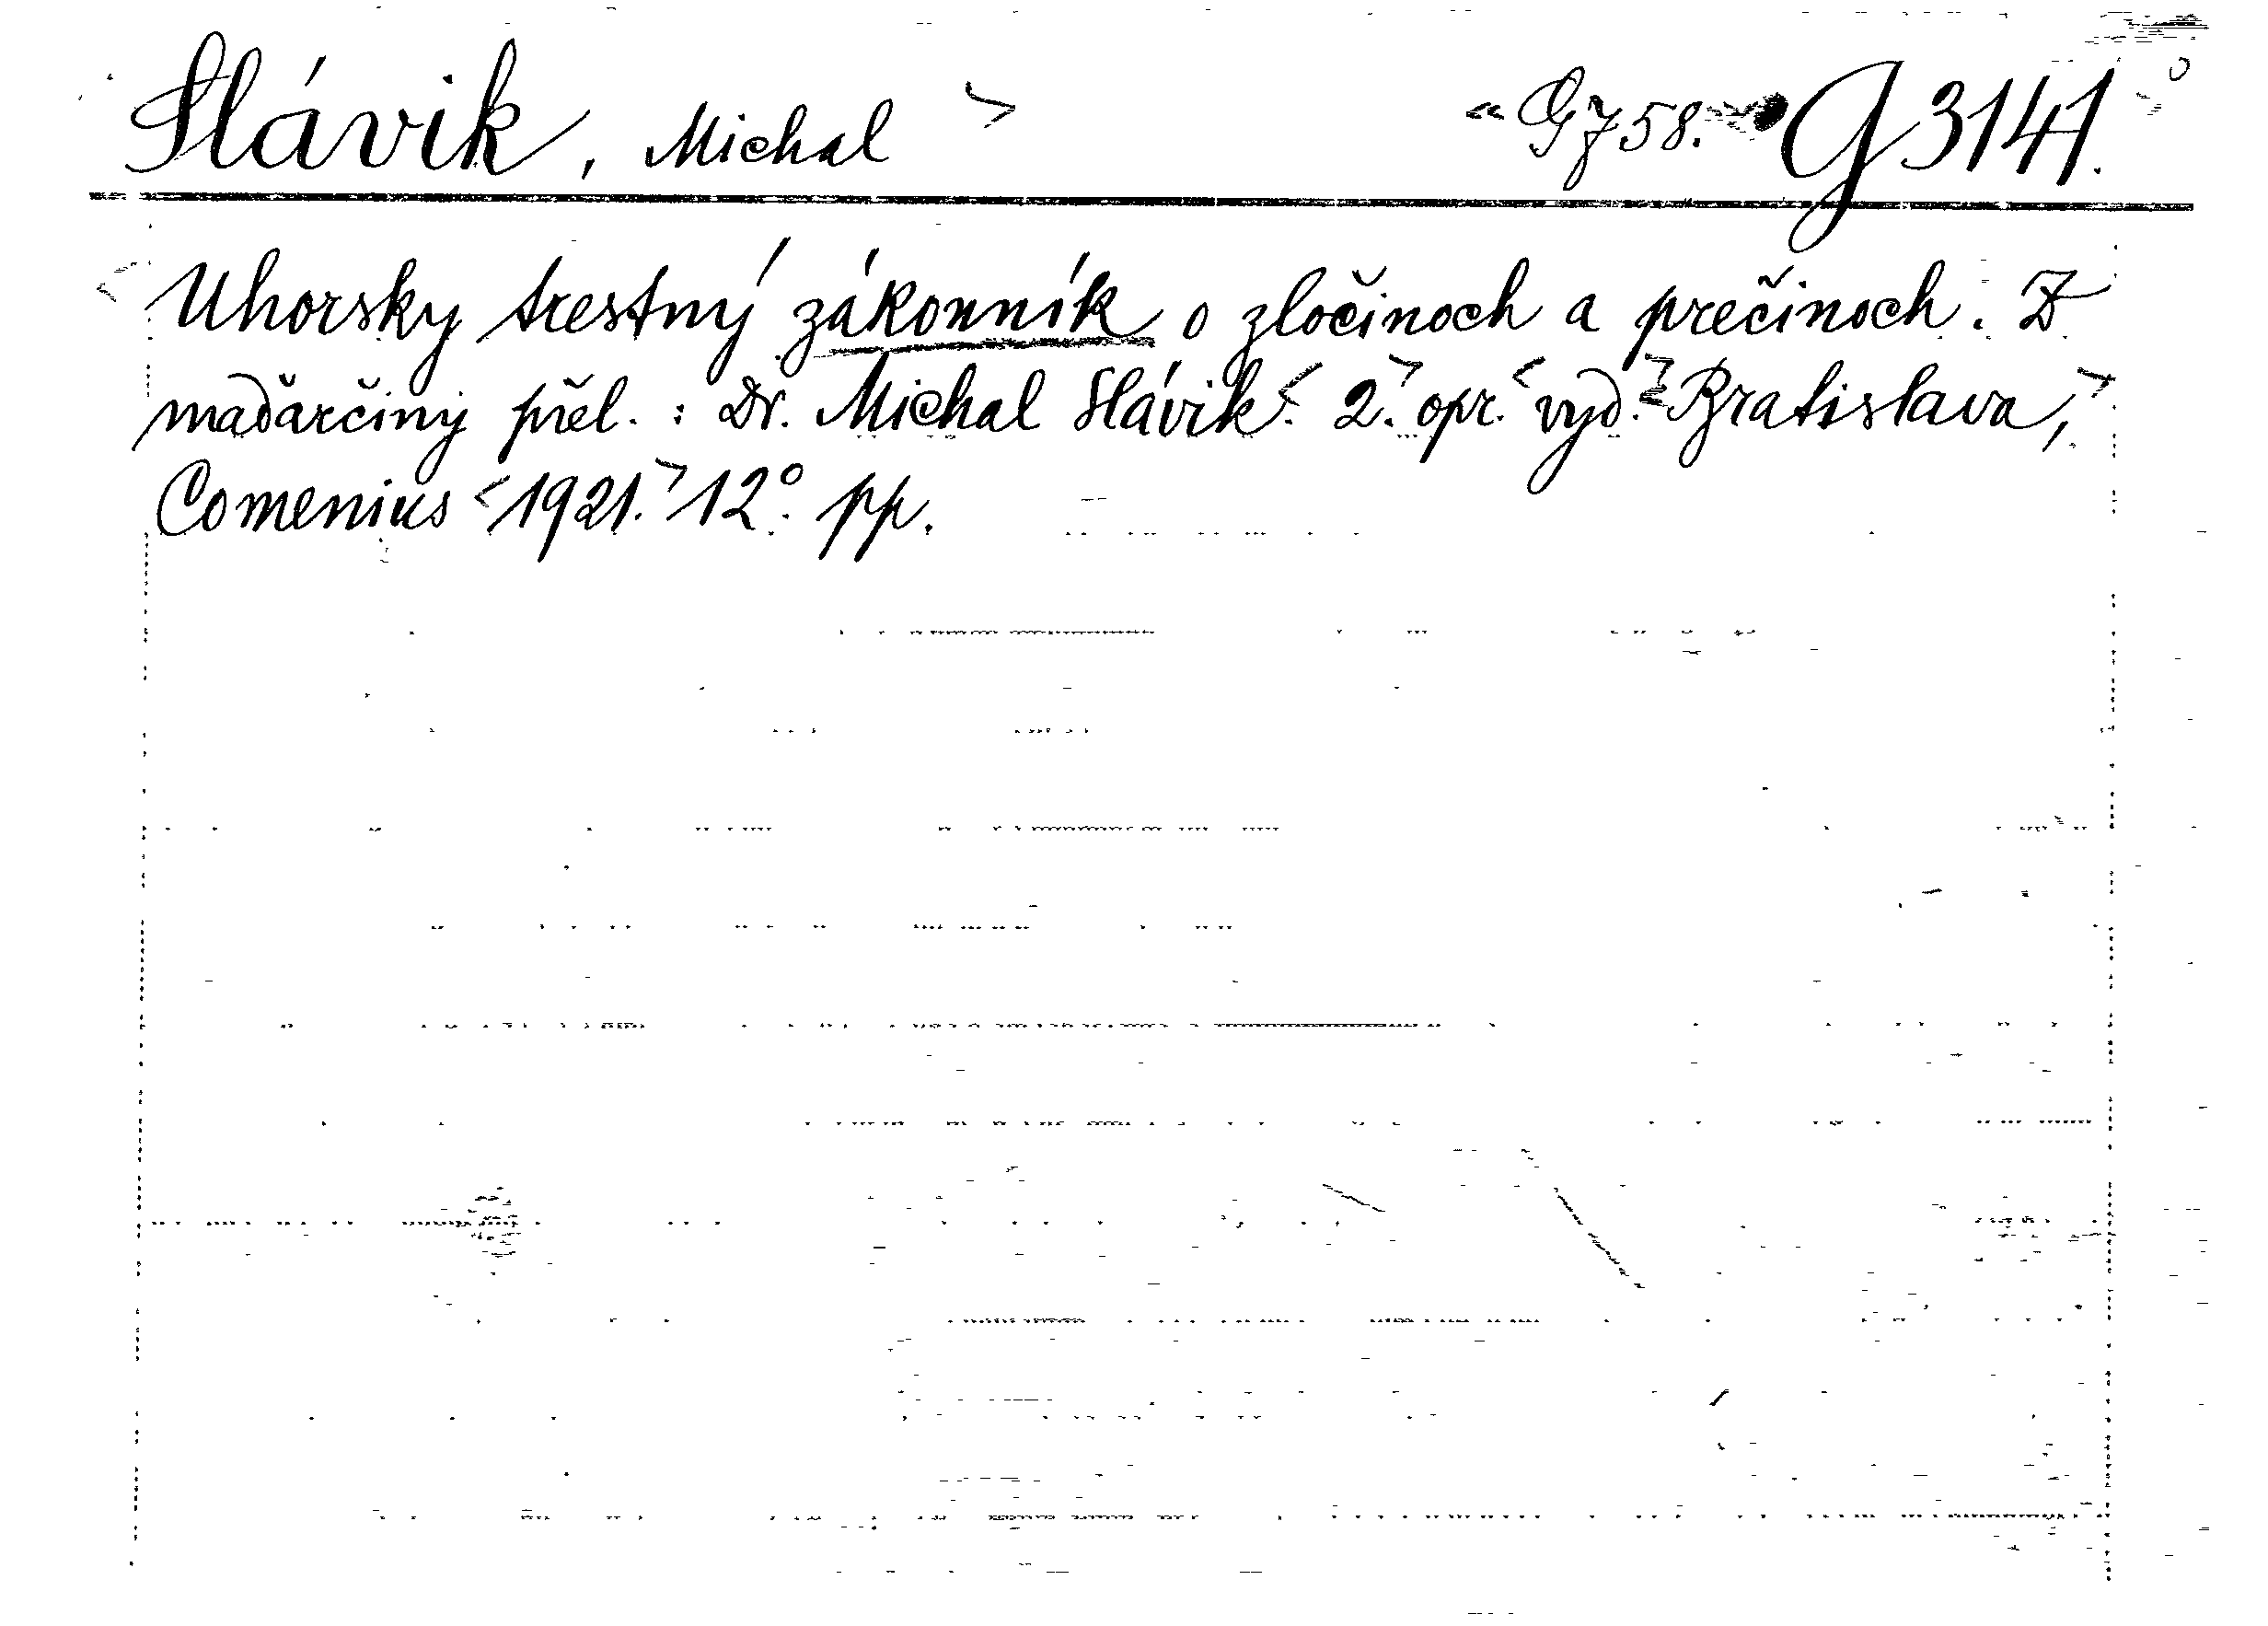 Slávik, Michal > « G 758. G 3141.
< Uhorsky trestný zákonník o zločinoch a prečinoch. Z
maďarčiny přel. : Dr. Michal Slávik. < 2. > opr. < vyd. > Bratislava, >
Comenius < 1921. > 12°. pp.